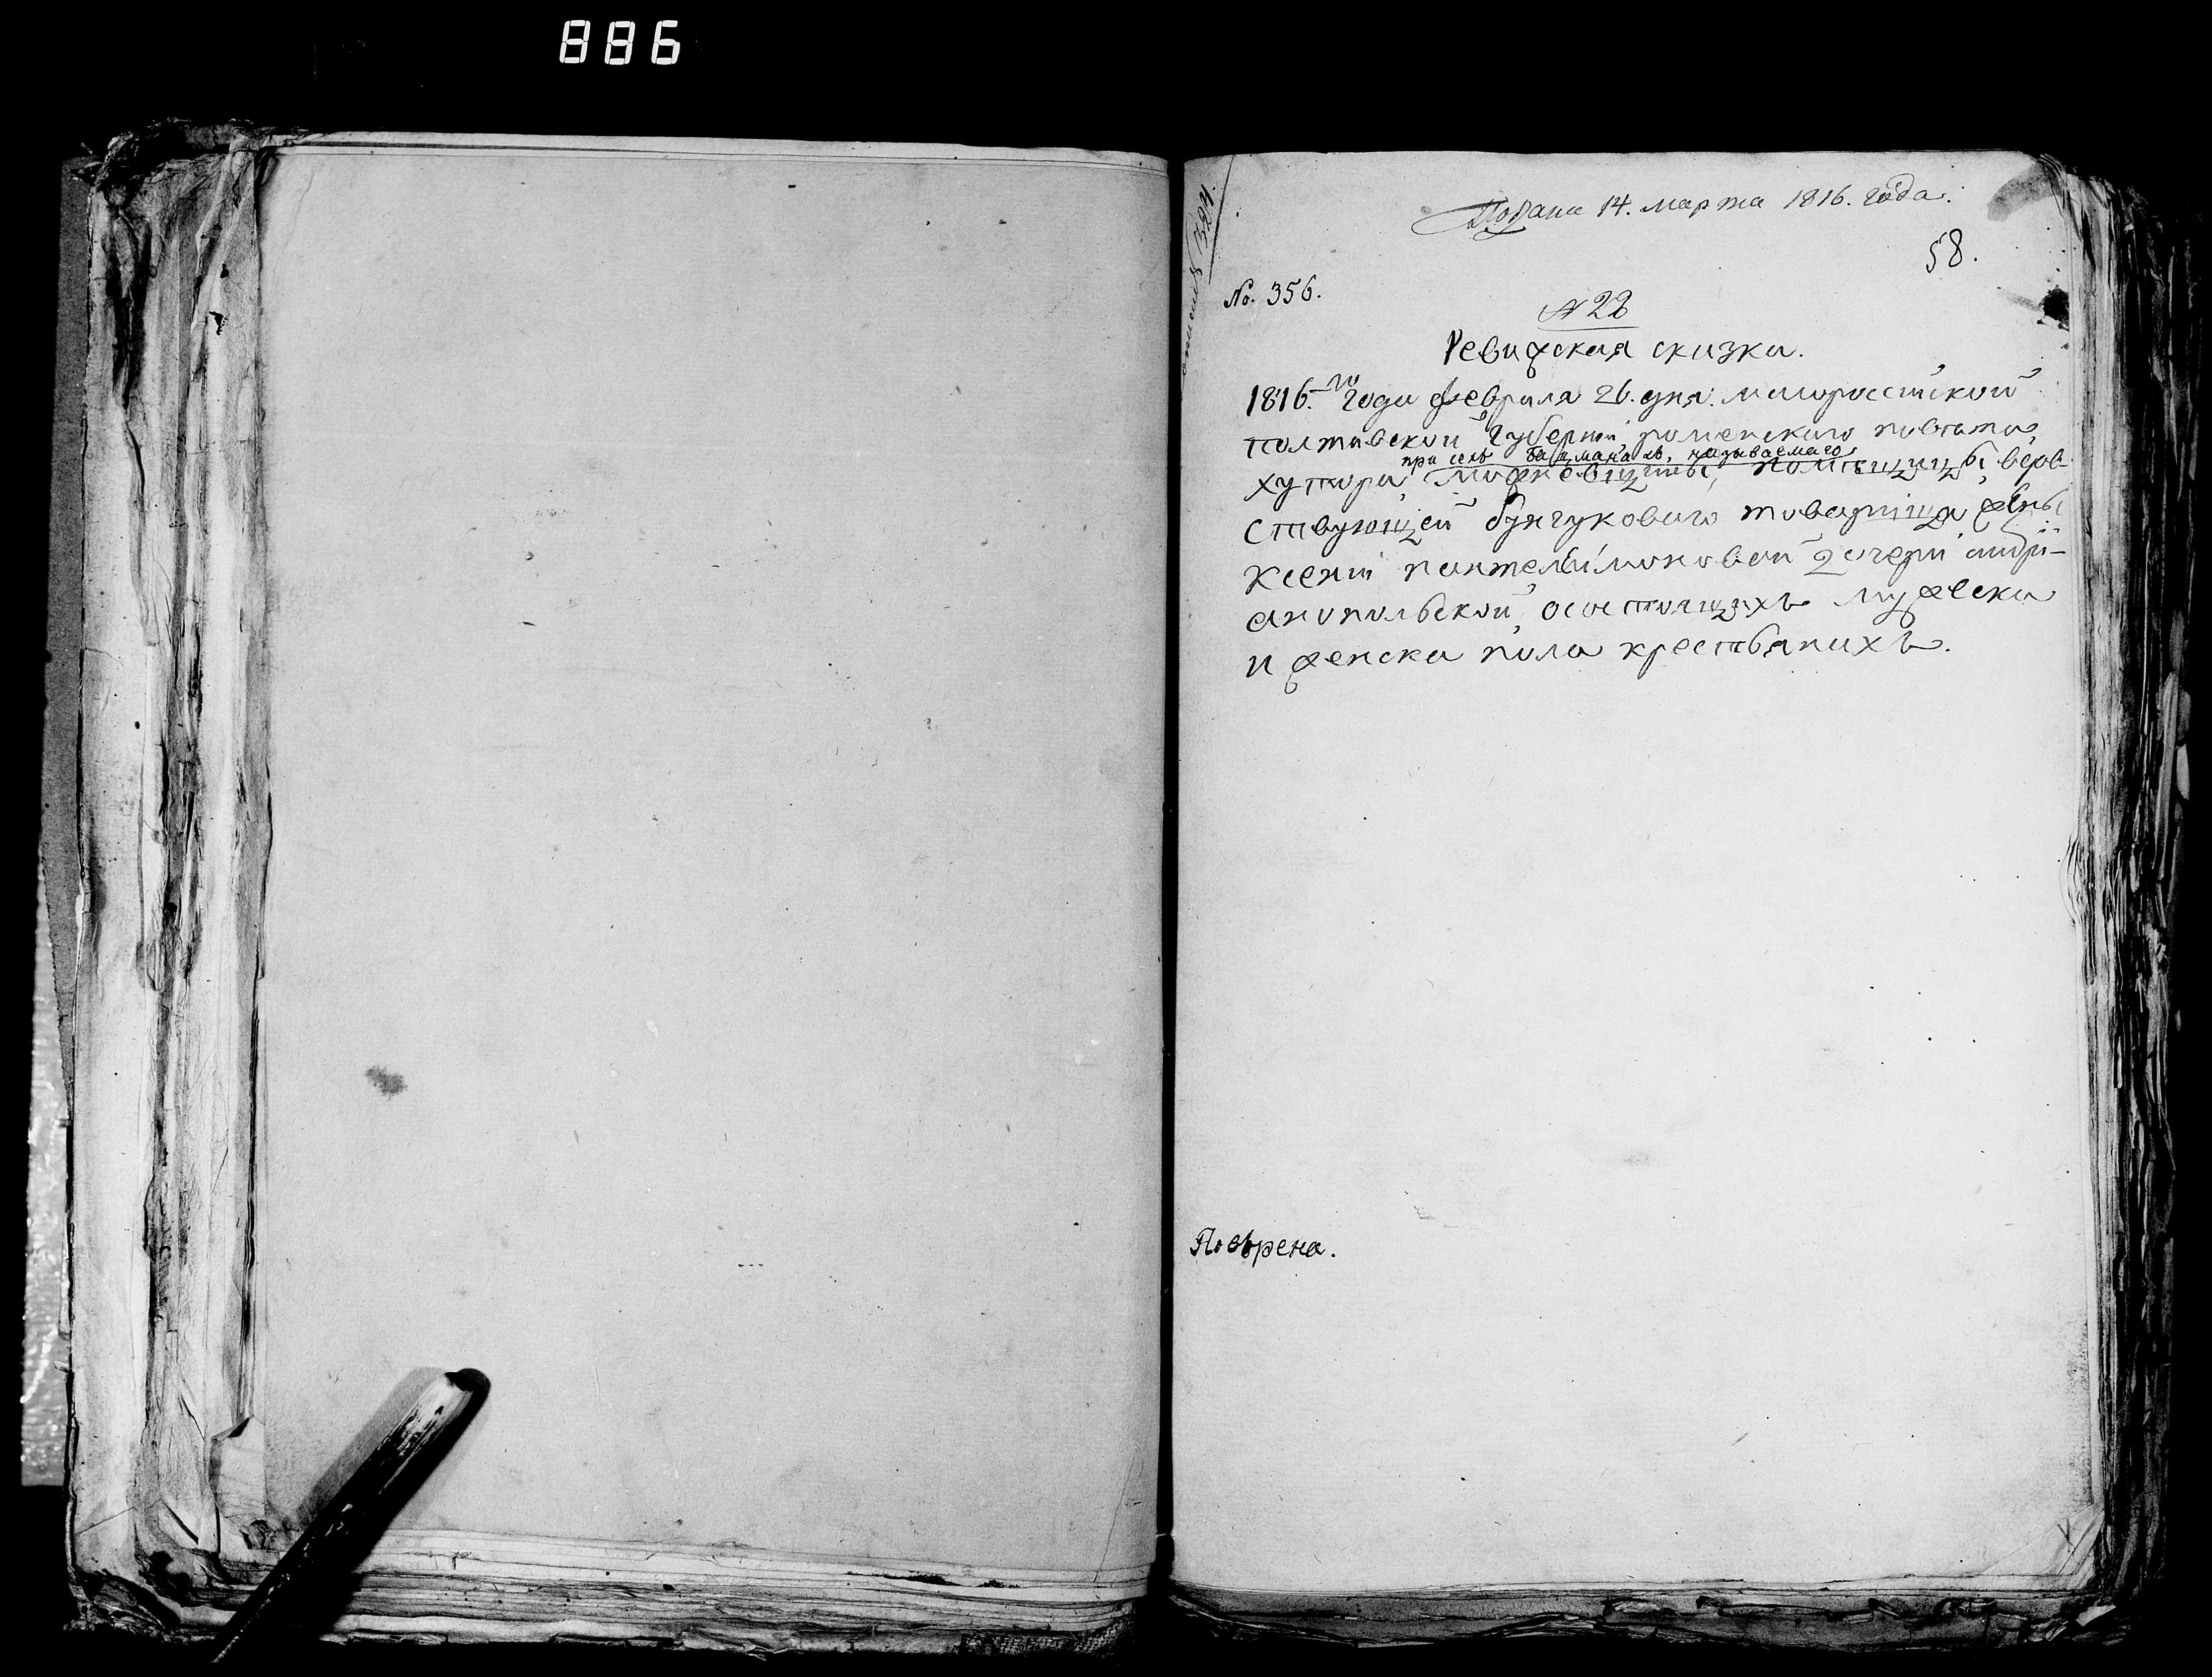 886
Подана 14. марта 1816. года.
58.
No. 356.
N 22
Ревижская сказка.
1816.го года февраля 26. дня. малороссійской
полтавской губерніи, роменского повета,
при селе Бацманахъ, називаемаго
хутора, помещицы, верв-
ствующей бунчукового товарища жены
Ксеніи пантелеимоновой дочери андрі-
анопольской, осостоящихъ мужеска
и женска пола крестьянихъ.
Поверена.